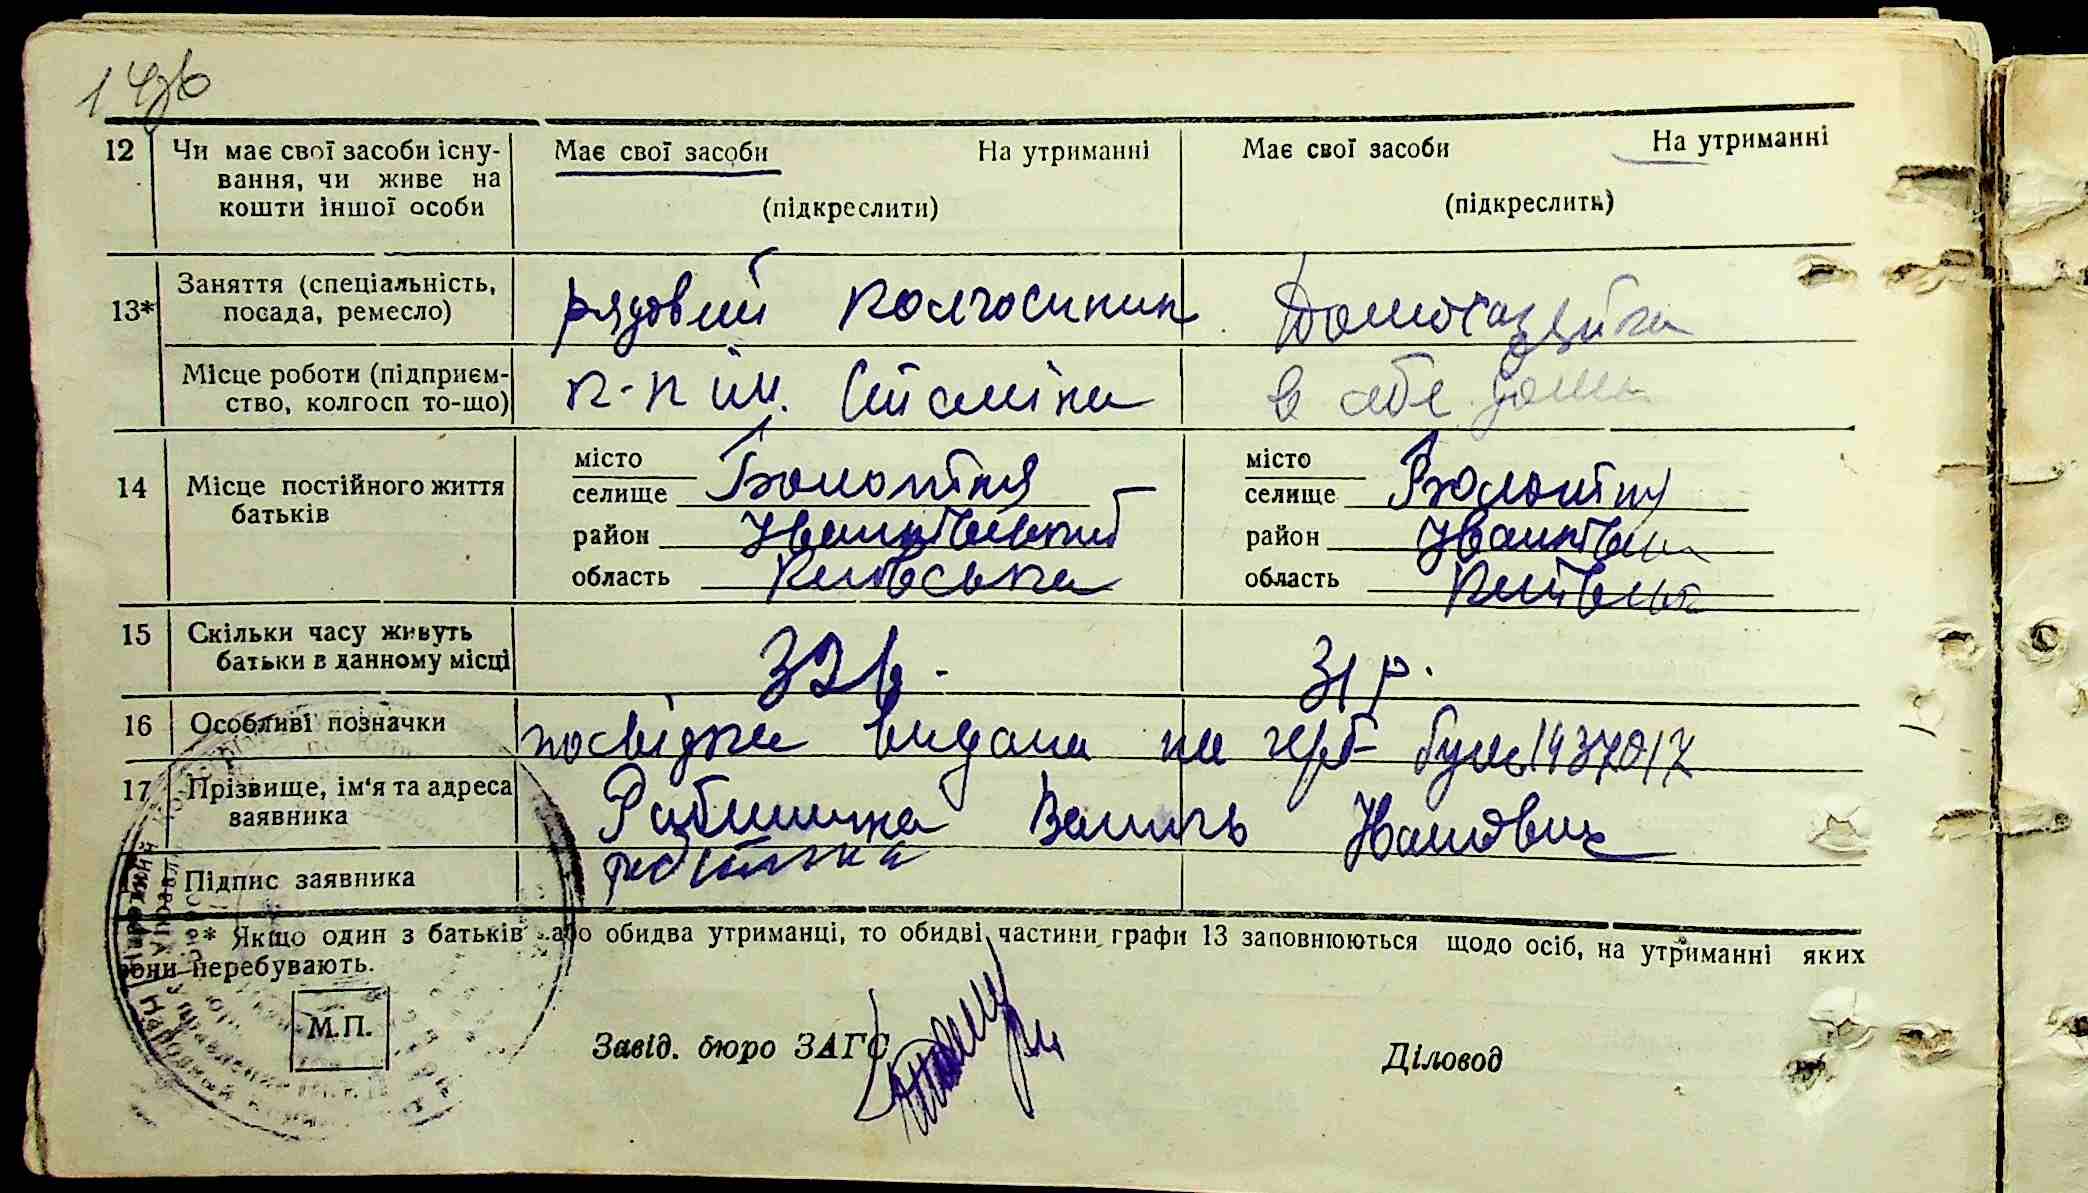 12 Чи має свої засоби існу- Має свої засоби На утриманні Має свої засоби На утриманні
вання, чи живе на
кошти іншої особи (підкреслити) (підкреслить)
13* Заняття (спеціальність, рядовий колгоспник Домогазяйка
посада, ремесло)
Місце роботи (підприєм- к-п ім. Сталіна в себе дома
ство, колгосп то-що)
14 Місце постійного життя місто місто
батьків селище Болотня селище Болотня
район Іванківський район
область Київська область
15 Скільки часу живуть 32 31 р.
батьки в данному місці
16 Особливі позначки посвідка видана на герб
17 Прізвище, ім'я та адреса
заявника
Підпис заявника
* Якщо один з батьків або обидва утриманці, то обидві частини графи 13 заповнюються щодо осіб, на утриманні яких
вони перебувають.
М.П.
Завід. бюро ЗАГС Діловод